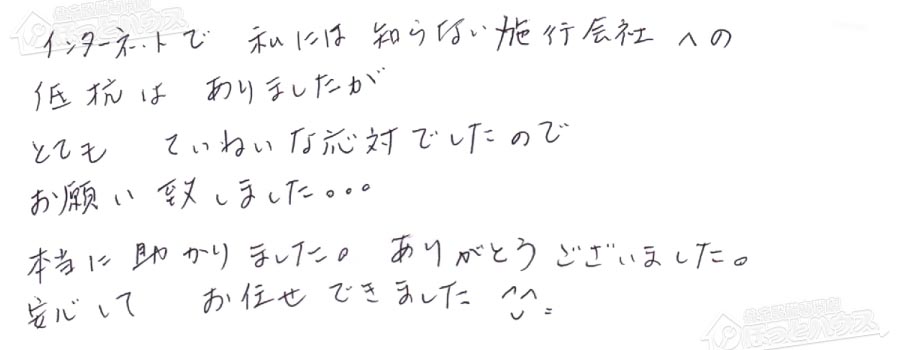 インターネットで 私には 知らない施行会社への
低抗は ありましたが
とても ていねいな応対でしたので
お願い 致しました。。。
本当に 助かりました。ありがとうございました。
安心して お任せできました ^^
ほっとハウス
ほっとハウス